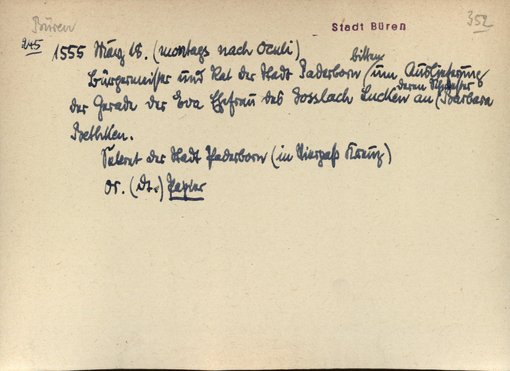 Büren
Stadt Büren
352
245
1555 März 18. (montags nach Oculi)
bitten
Bürgermeister und Rat der Stadt Paderborn um Auslieferung
deren Schwester
der Gerade der Eva Ehefrau des Jossbach Lucken an Barbara
Bethken.
Sekret der Stadt Paderborn (in Vierpaß Kreuz)
Or. (dt.) Papier